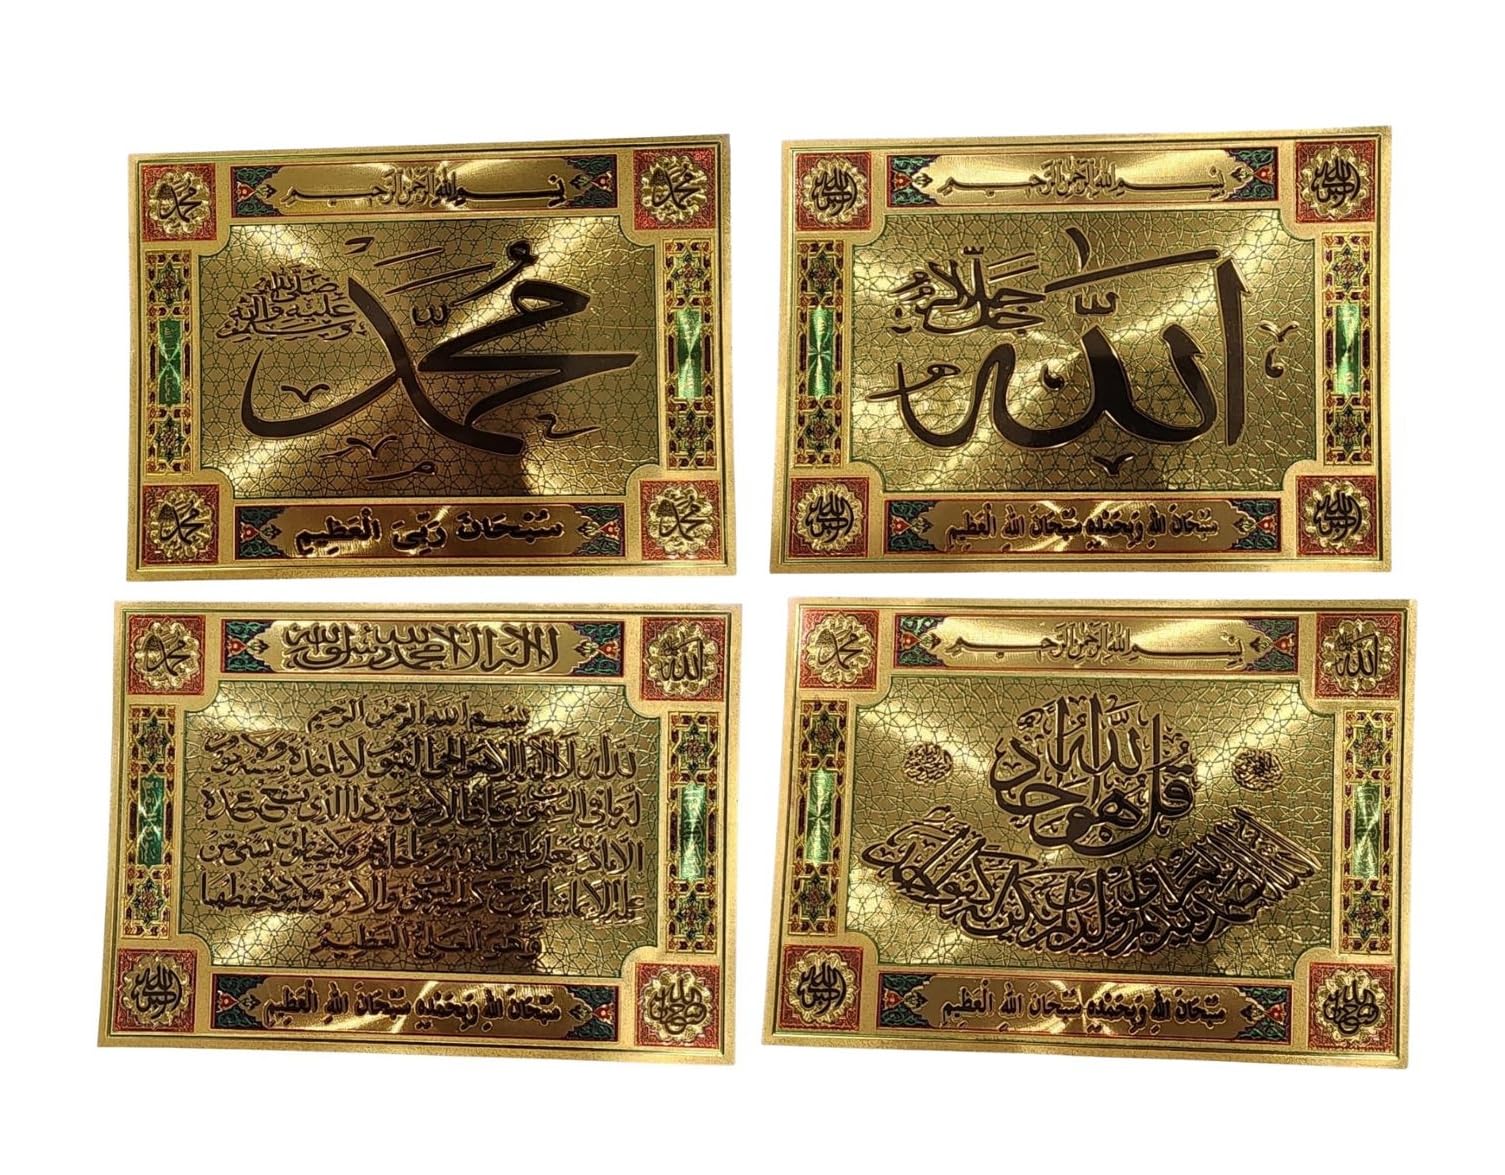 بِسْمِ اللهِ الرَّحْمٰنِ الرَّحِيمِ
مُحَمَّد
صلى الله
عليه وآله
وسلم
سُبْحَانَ رَبِّيَ الْعَظِيمِ
محمد
محمد
محمد
محمد
بِسْمِ اللهِ الرَّحْمٰنِ الرَّحِيمِ
الله
جل جلاله
سُبْحَانَ اللهِ وَبِحَمْدِهِ سُبْحَانَ اللهِ الْعَظِيمِ
لا اله الا الله محمد رسول الله
محمد
الله
بسم الله الرحمن الرحيم
الله لا اله الا هو الحي القيوم لا تاخذه سنة ولا نوم
له ما في السموات وما في الارض من ذا الذي يشفع عنده
الا باذنه يعلم ما بين ايديهم وما خلفهم ولا يحيطون بشيء من
علمه الا بما شاء وسع كرسيه السموات والارض ولا يؤده حفظهما
وهو العلي العظيم
سُبْحَانَ اللهِ وَبِحَمْدِهِ سُبْحَانَ اللهِ الْعَظِيمِ
بِسْمِ اللهِ الرَّحْمٰنِ الرَّحِيمِ
محمد
الله
قل هو الله احد
الله الصمد لم يلد ولم يولد ولم يكن له كفوا احد
سُبْحَانَ اللهِ وَبِحَمْدِهِ سُبْحَانَ اللهِ الْعَظِيمِ